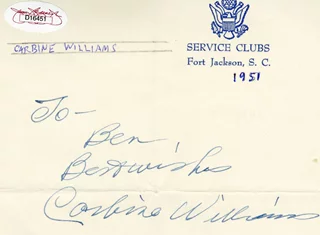 D16451
CARBINE WILLIAMS
SERVICE CLUBS
Fort Jackson, S. C.
1951
To-
Ben
Best wishes
Carbine Williams